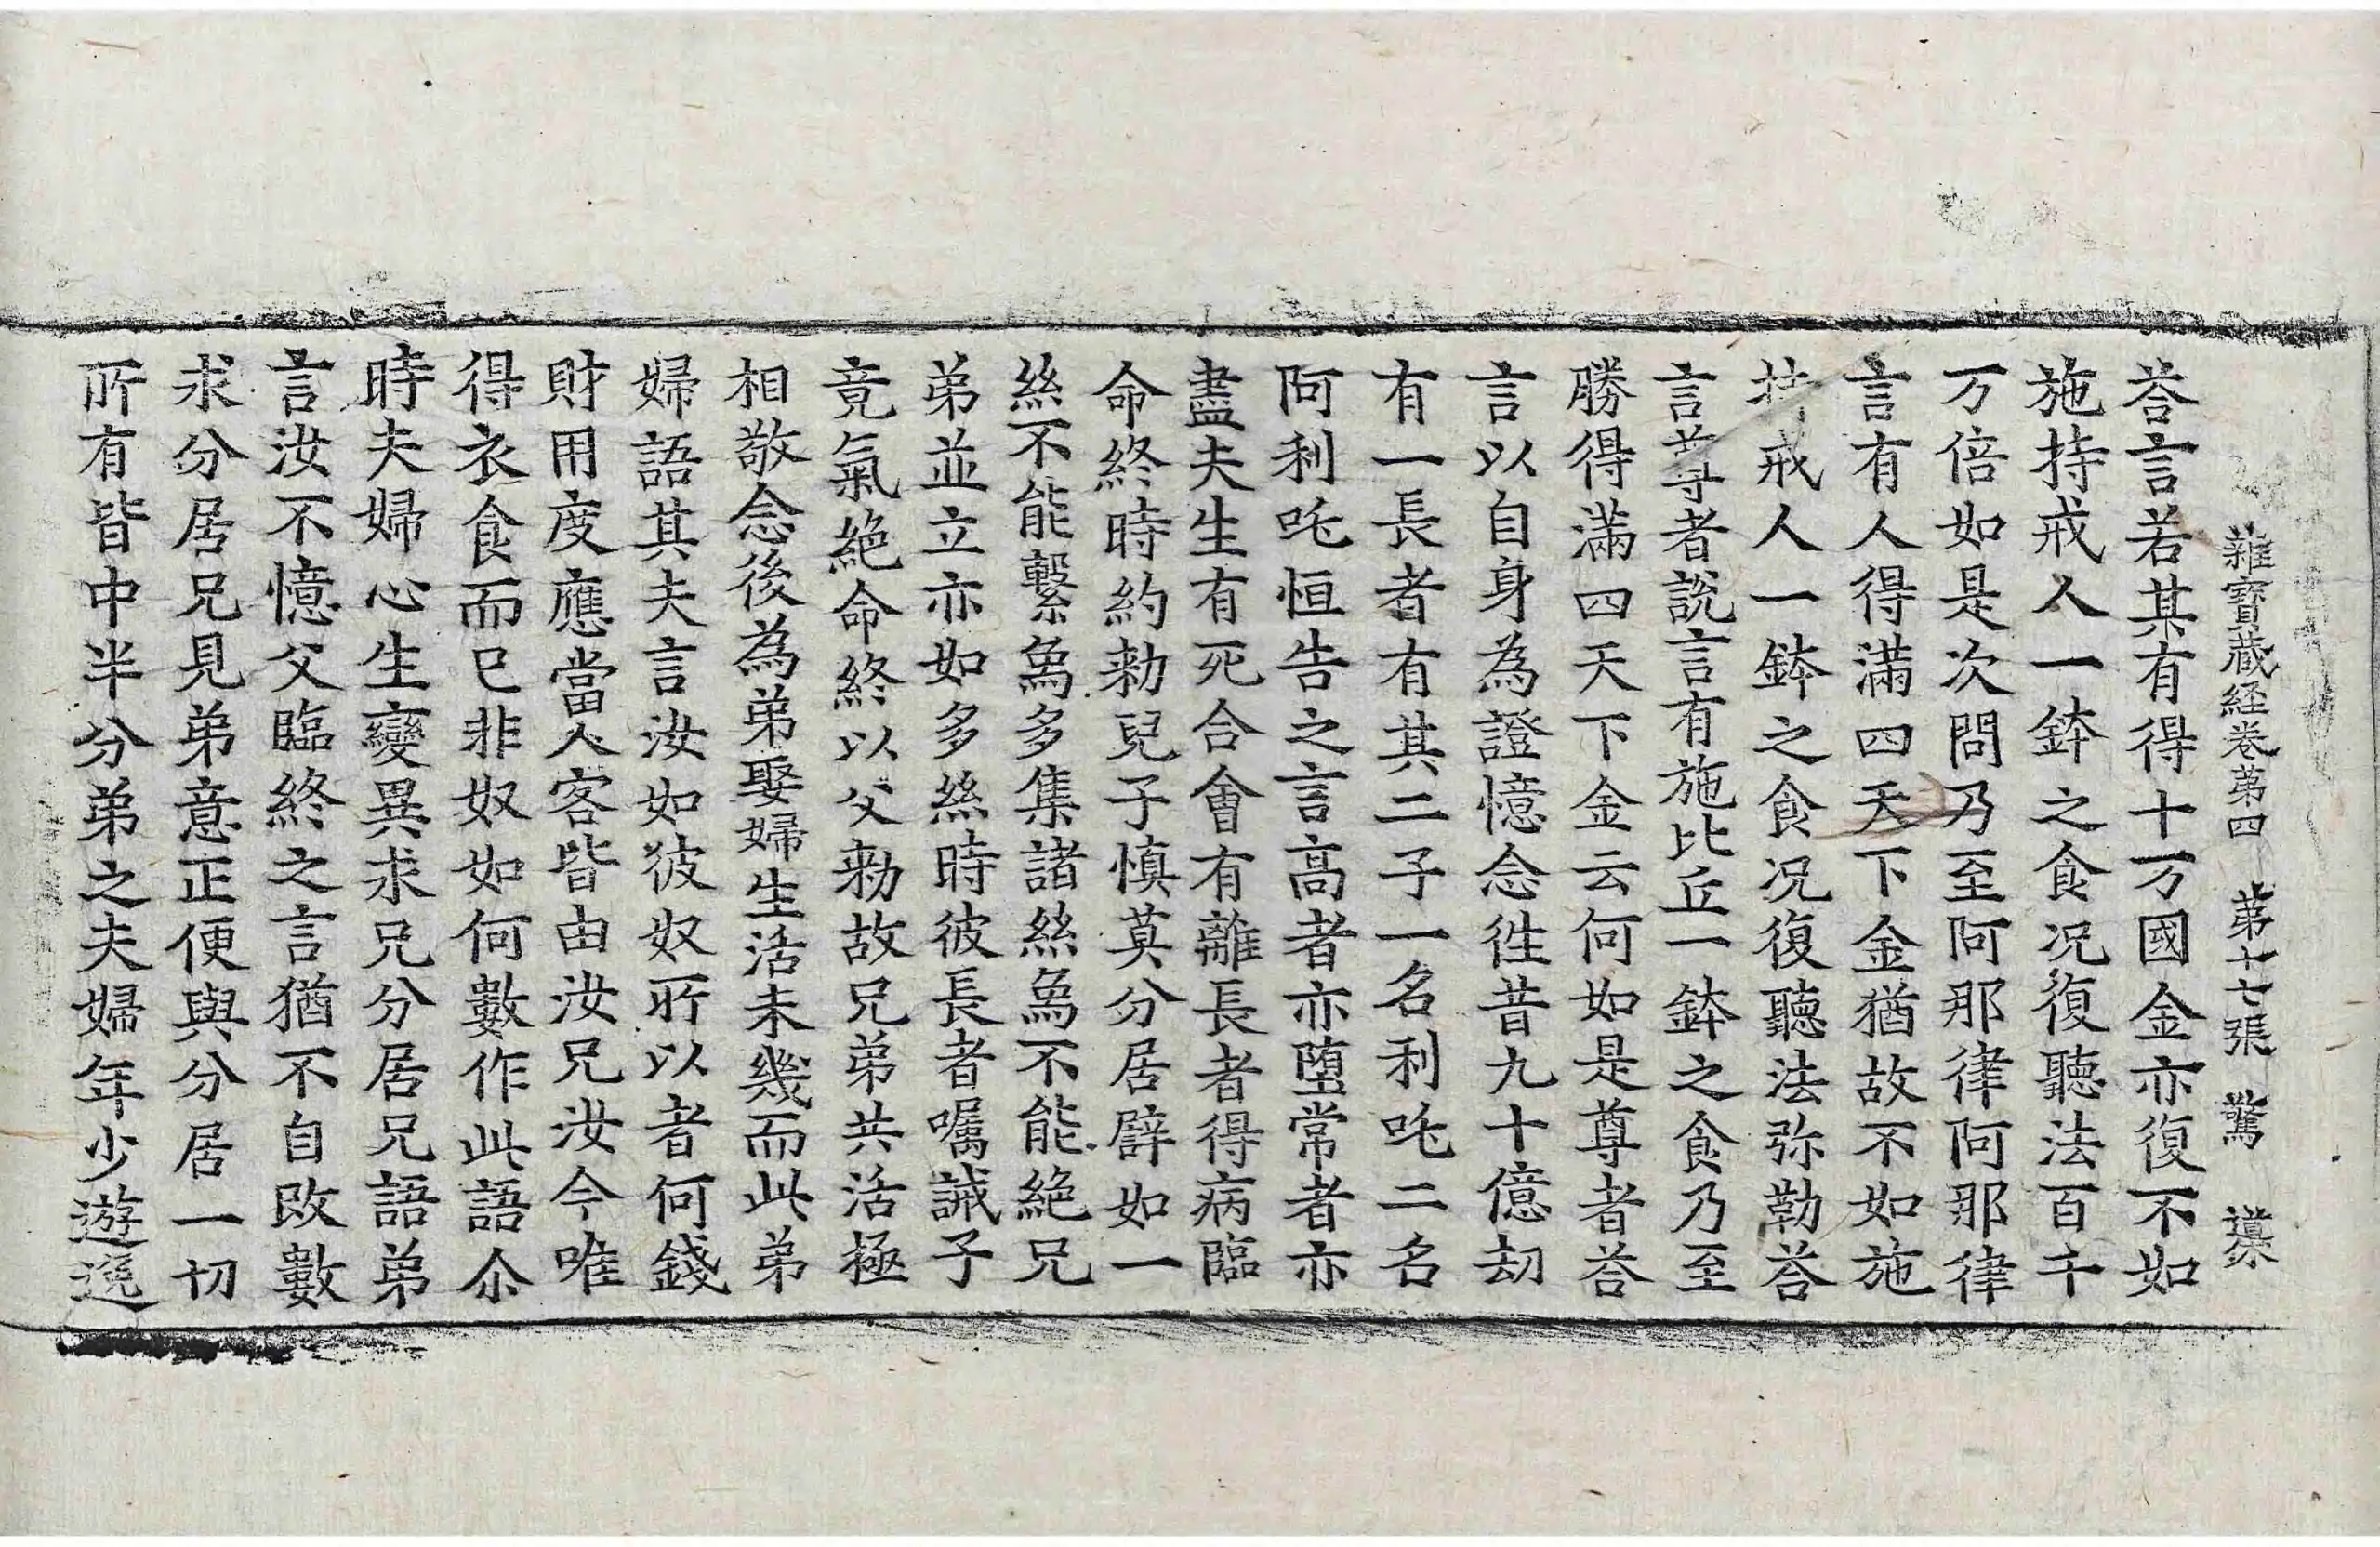 雜寶蔵経卷第四　第十七張　驚　遵
荅言若其有得十万國金亦復不如
施持戒人一鉢之食况復聽法百千
万倍如是次問乃至阿那律阿那律
言有人得滿四天下金猶故不如施
持戒人一鉢之食况復聽法弥勒荅
言尊者說言有施比丘一鉢之食乃至
勝得滿四天下金云何如是尊者荅
言以自身為證憶念徃昔九十億劫
有一長者有其二子一名利吒二名
阿利吒恒告之言高者亦墮常者亦
盡夫生有死合會有離長者得病臨
命終時約勑兒子慎莫分居譬如一
絲不能繫象多集諸絲象不能絕兄
弟並立亦如多絲時彼長者囑誡子
竟氣絕命終以父勑故兄弟共活極
相敬念後為弟娶婦生活未幾而此弟
婦語其夫言汝如彼奴所以者何錢
財用度應當人客皆由汝兄汝今唯
得衣食而已非奴如何數作此語尒
時夫婦心生變異求兄分居兄語弟
言汝不憶父臨終之言猶不自改數
求分居兄見弟意正便與分居一切
所有皆中半分弟之夫婦年少遊逸